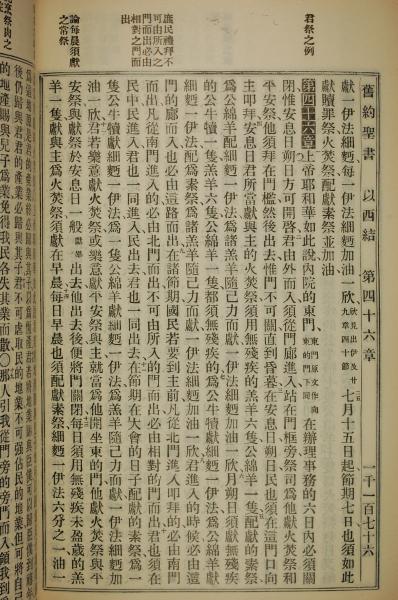 舊約聖書 以西結 第四十六章 一千一百七十六
君祭之例
獻一伊法細麵每一伊法加油一欣 欣見出伊及廿
九章四十節 七月十五日起節期七日也須如此
獻贖罪祭火焚祭配獻素祭並加油
第四十六章 上帝耶和華如此說內院的東門 東門原文作向
東的門下同 在辦理事務的六日內必須關
閉惟安息日朔日方可開啓君由外而入須從門廊進入站在門框旁祭司爲他獻火焚祭和
平安祭他須拜在門檻然後出去惟門不可關直到昏暮在安息日朔日民也須在這門口向
主叩拜安息日君所當獻與主的火焚祭須用無殘疾的羔羊六隻公綿羊一隻配獻的素祭
爲公綿羊配細麵一伊法爲羔羊隨己力而獻一伊法細麵加油一欣月朔日須獻無殘疾
的公牛犢一隻羔羊六隻公綿羊一隻都須無殘疾的爲公牛犢獻細麵一伊法爲公綿羊獻
細麵一伊法配爲素祭爲諸羔羊隨己力而獻一伊法細麵加油一欣君進入的時候必由這
庶民禮拜不
可由所入之
門而出必由
相對之門而
出
門的廊而入也必由這路而出在諸節期國民若要到主前凡從北門進入叩拜的必由南門
而出凡從南門進入的必由北門而出不可由所入的門而出必由相對的門而出君也須在
民中民進入君也一同進入民出去君也一同出去在節期在大會的日子配獻的素祭爲一
隻公牛犢獻細麵一伊法爲一隻公綿羊獻細麵一伊法爲羔羊隨己力而獻一伊法細麵加
油一欣君若樂意獻火焚祭或樂意獻平安祭與主就當爲他開坐東的門他獻火焚祭與平
論每晨須獻
之常祭
安祭與獻祭於安息日一般獻畢出去他出去後便將門關閉每日須用無殘疾未盈歲的羔
羊一隻獻與主爲火焚祭須獻在每日早晨每日早晨也須配獻素祭細麵一伊法六分之一油一
後仍歸與君君的產業必歸與其子君不可虐取民的地業不可強佔民的地業但可將自己
的地產賜與兒子爲業免得我民各失其業而散〇那人引我從門旁的旁門而入領我到